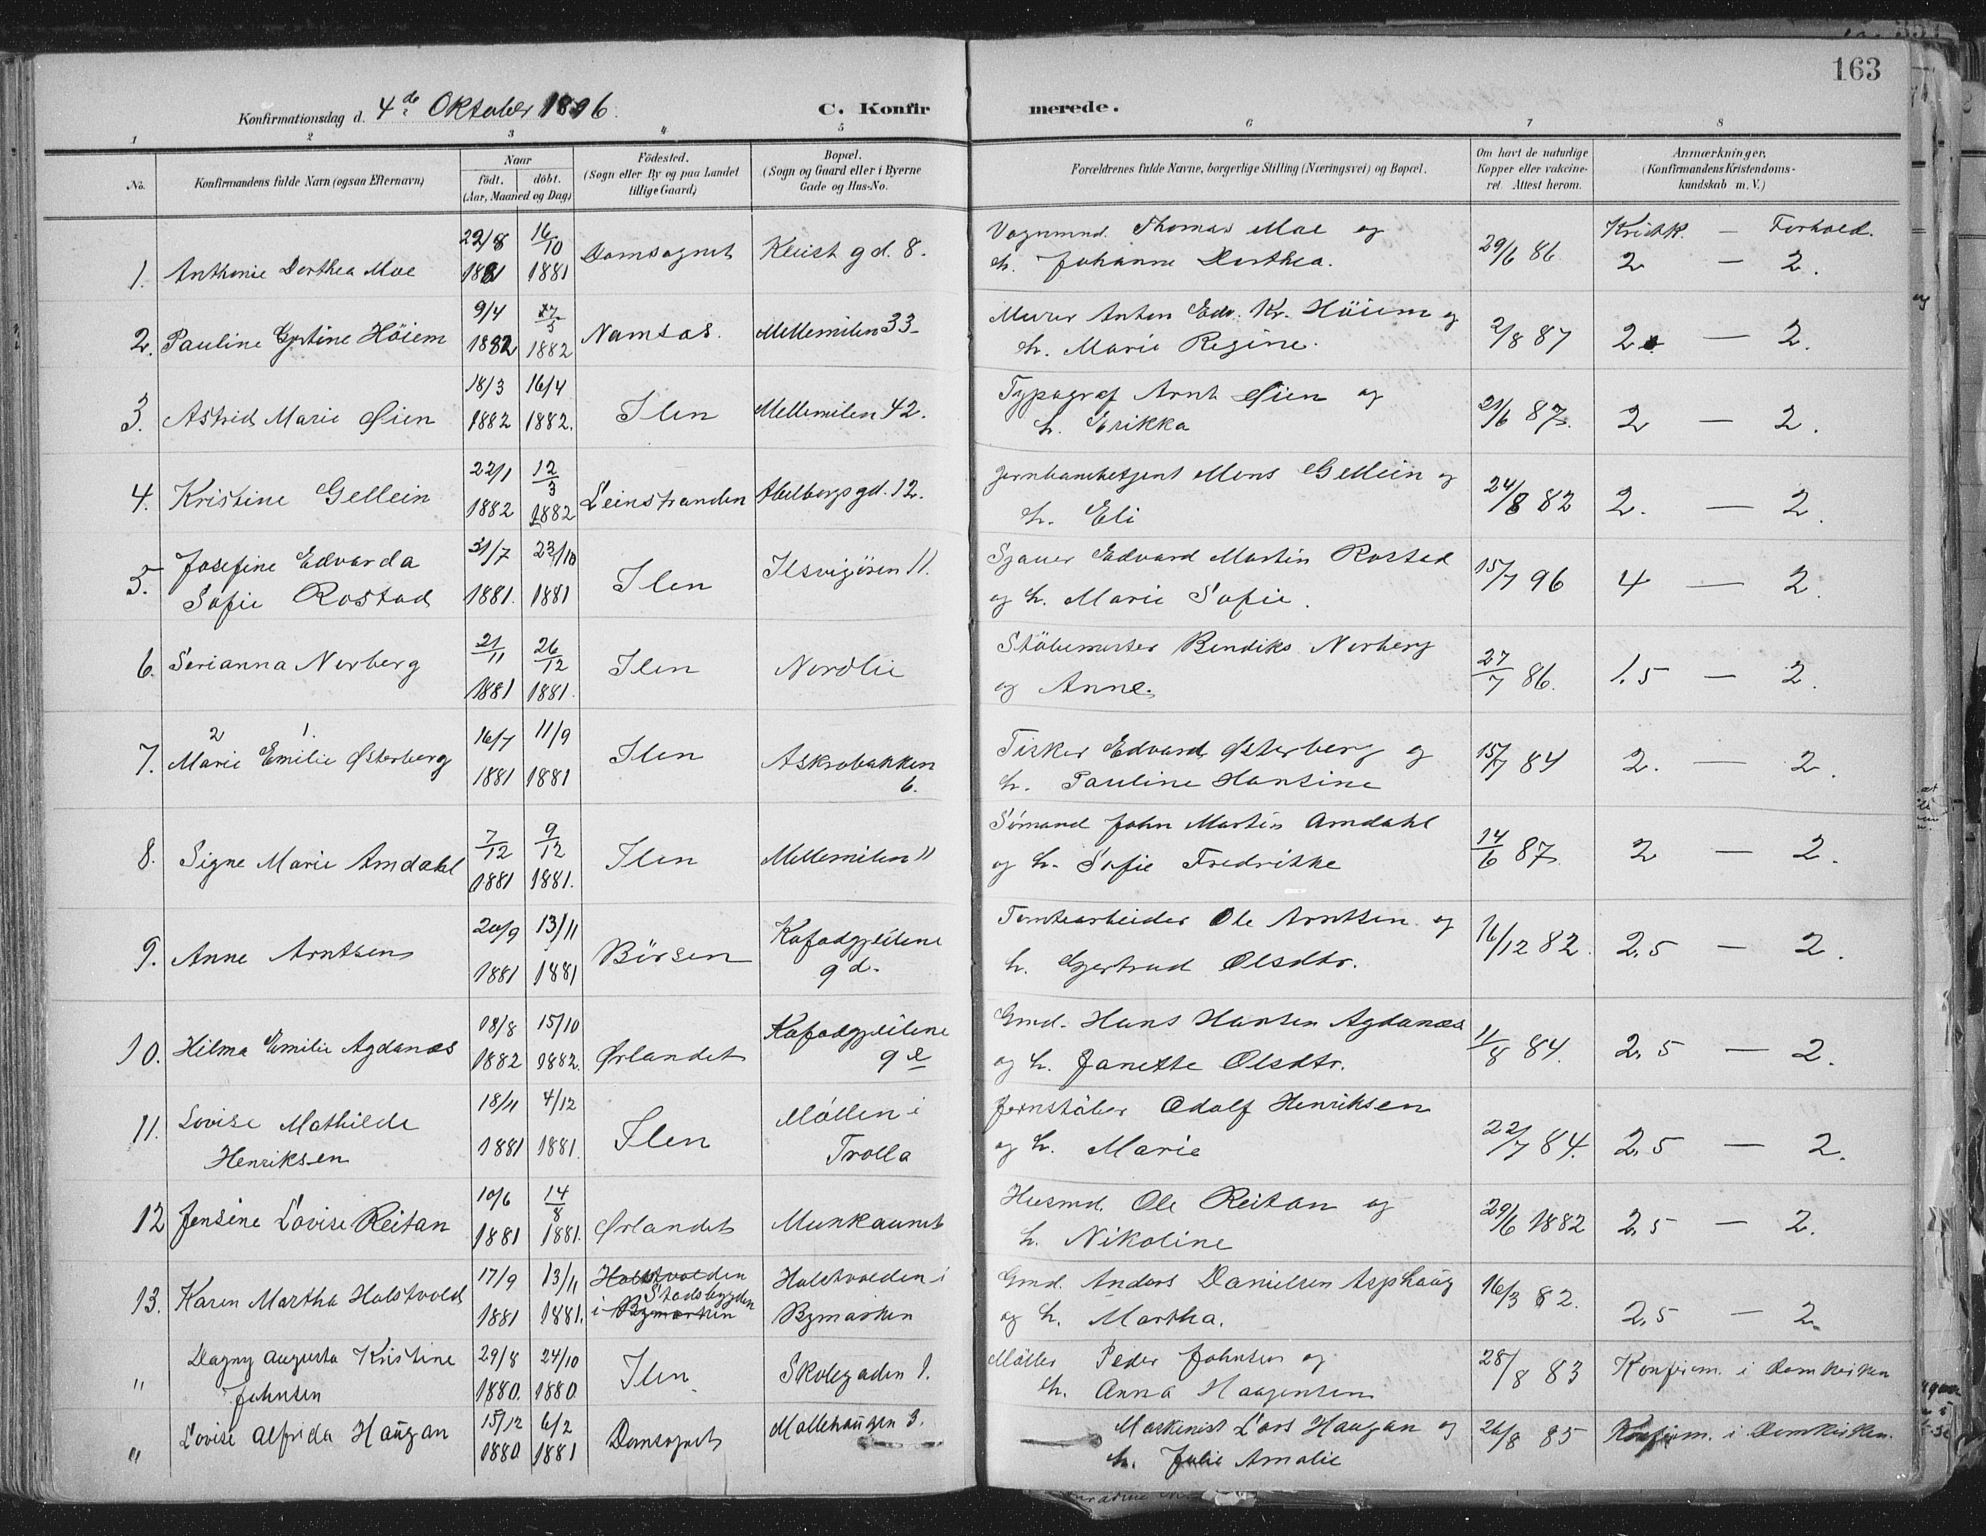 163
Konfirmationsdag d. 4de Oktober 1896.
C. Konfirmerede.
1 2 3 4 5 6 7 8
No. Konfirmandens fulde Navn (ogsaa Efternavn) Naar født. døbt. (Aar, Maaned og Dag) Födested. (Sogn eller By og paa Landet tillige Gaard) Bopæl. (Sogn og Gaard eller i Byerne Gade og Hus-No. Forældrenes fulde Navne, borgerlige Stilling (Næringsvei) og Bopæl. Om havt de naturlige Kopper eller vakcineret. Attest herom. Anmærkninger. (Konfirmandens Kristendomskundskab m. V.)
Kridk. — Forhold.
1. Anthonie Dorthea Moe 22/8 1881 16/10 1881 Domsognet Kleist gd. 8. Vognmnd. Thomas Moe og h. Johanne Dorthea. 29/6 86. 2 — 2.
2. Pauline Gjrtine Höiem 9/4 1882 27/5 1882 Namsos. Mellemilen 33 Murer Anton Edv. Kr. Höiem og h. Marie Regine. 2/8 87 2. — 2.
3. Astrid Marie Øien 18/3 1882 16/4 1882. Ilen Mellemilen 42. Typograf Arnt Øien og h. Erikka 21/6 87. 2 — 2.
4. Kristine Gellein 22/1 1882 12/3 1882 Leinstranden Abelborgs gd. 12. Jernbanebetjent Mons Gellein og h. Eli 24/8 82 2. — 2.
5. Josefine Edvarda Sofie Rostad 31/7 1881. 23/10 1881 Ilen Ilsvigören 11. Sjauer Edvard Martin Rostad og h. Marie Sofie. 15/7 96 4 — 2.
6. Serianna Norberg 21/11 1881 26/12 1881. Ilen Nordlie Stöbemester Bendiks Norberg og Anne. 27/7 86. 1.5 — 2.
2 1.
7. Marie Emilie Østerberg 16/7 1881 11/9 1881 Ilen Askrobakken 6. Fisker Edvard Østerberg og h. Pauline Hansine 15/7 84 2. — 2.
8. Signe Marie Amdahl 7/12 1881 9/12 1881. Ilen Mellemilen 11 Sömand John Martin Amdahl og h. Sofie Fredrikke 14/6 87. 2 — 2.
9. Anne Arntsen 20/9 1881 13/11 1881 Börsen Kafadgjeitene 9 d. Tomtearbeider Ole Arntsen og h. Gjertrud Olsdtr. 16/12 82. 2,5 — 2.
10. Hilma Emilie Agdanæs 18/8 1882 15/10 1882. Ørlandet Kafadgjeitene 9 e Gmd. Hans Hansen Agdanæs og h. Janette Olsdtr. 11/8 84. 2,5 — 2.
11. Lovise Mathilde Henriksen 18/11 1881 4/12 1881. Ilen Möllen i Trolla Jernstöber Adolf Henriksen og h. Marie 22/7 84. 2,5 — 2.
12 Jensine Lovise Reitan 10/6 1881 14/8 1881. Ørlandet Munkaunet Husmd. Ole Reitan og h. Nikoline 29/6 1882 2,5 — 2.
13. Karen Martha Holstvold 17/9 1881 13/11 1881. Holstvolden i Bymarken Stadsbygden Holstvolden i Bymarken Gmd. Anders Danielsen Asphaug og h. Martha. 16/3 82. 2,5 — 2.
" Dagny Augusta Kristine Johnsen 29/8 1880. 24/10 1880 Ilen Skolegaden 1. Möller Peder Johnsen og h. Anna Haagensen 28/8 83 Konfirm. i Domkirken
" Lovise Alfrida Haugan 15/12 1880 6/2 1881 Domsognet Mollehaugen 3. Maskinist Lars Haugan og h. Julie Amalie 26/8 85 Konfirm. i Domkirken.